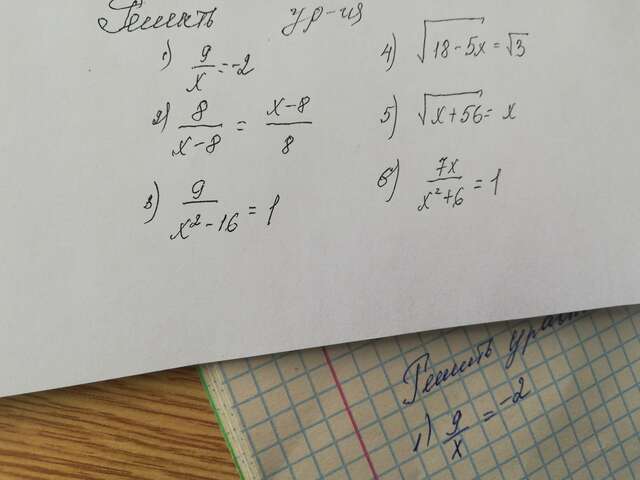 Решить ур-ия
1) 9/x = -2
2) 8/(x-8) = (x-8)/8
3) 9/(x²-16) = 1
4) √(18-5x) = √3
5) √(x+56) = x
6) 7x/(x²+6) = 1
Решить
1) 9/x = -2